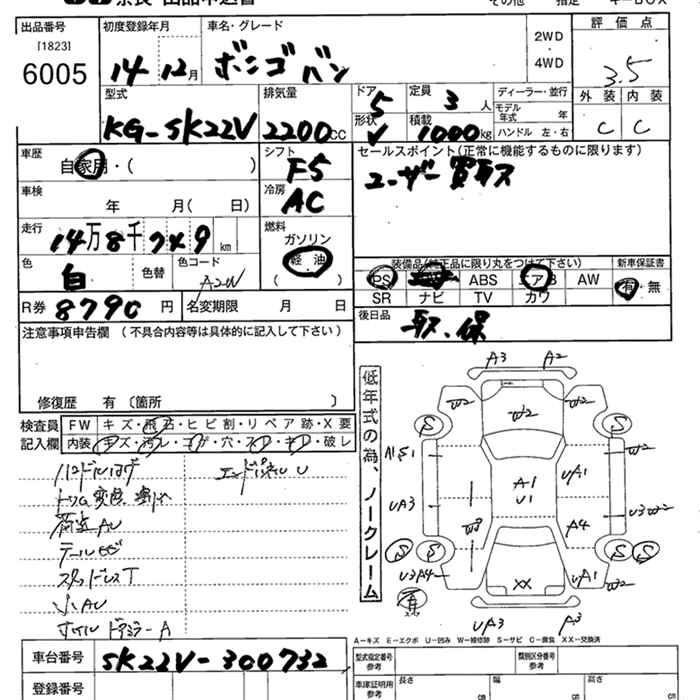 奈良 出品申込書
その他 指定 キーBOX
出品番号
[1823]
6005
初度登録年月
14 12月
車名・グレード
ボンゴ バン
2WD
・
4WD
評価点
3.5
外装 内装
C C
型式
KG-SK22V
排気量
2200cc
ドア 5
形状 V
定員 3 人
積載 1000kg
ディーラー・並行
モデル年式 年
ハンドル 左・右
車歴
自家用・( )
シフト
F5
セールスポイント(正常に機能するものに限ります)
ユーザー買取
車検
年 月( 日)
冷房
AC
走行
14万8千749km
燃料
ガソリン
軽・油
( )
色
白
色替
色コード
A2W
装備品(純正品に限り丸をつけて下さい)
新車保証書
PS ABS エアB AW
有・無
SR ナビ TV カワ
R券 8790円
名変期限 月 日
後日品
取.保
注意事項申告欄 (不具合内容等は具体的に記入して下さい)
修復歴 有 〔箇所 〕
検査員
記入欄
FW キズ・飛石・ヒビ割・リペア跡・X要
内装 キズ・汚レ・コゲ・穴・スレ・キレ・破レ
荷台AU
エンドパネルU
スタッドレスT
小AU
ホイル ドアミラーA
低年式の為、ノークレーム
A3 A2
W2 W2 W2
S S
A1 S1 W2
A1
U1
UA1
UA3
U3 W2
W3
A4
S S S S
U3A4
XX
UA1 W2
UA3 A3
A-キズ E-エクボ U-凹み W-補修跡 S-サビ C-腐食 XX-交換済
車台番号
SK22V-300732
登録番号
型式指定番号
参考
類別区分番号
参考
車庫証明用
参考
長さ cm
幅 cm
高さ cm